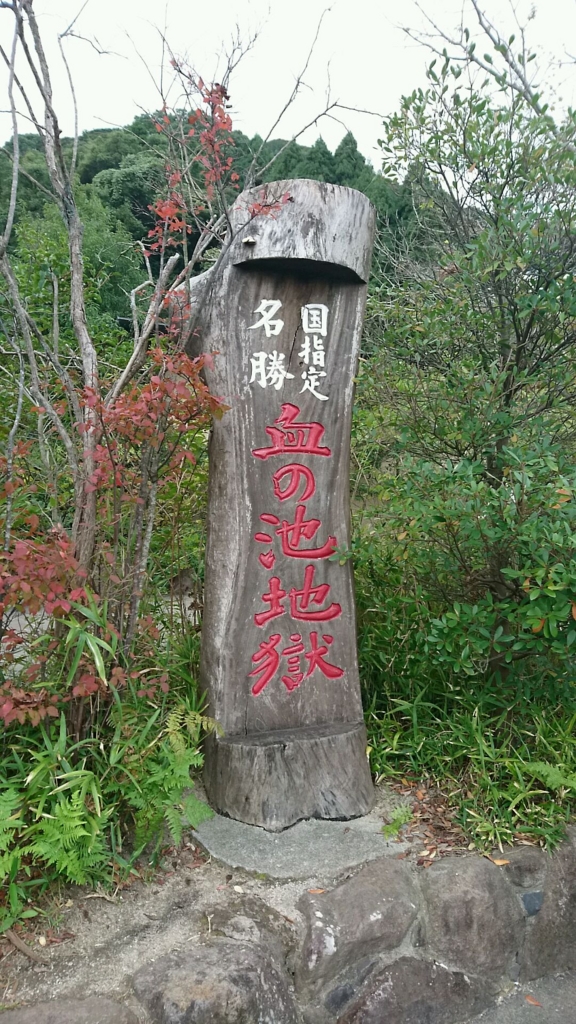 国指定
名勝
血の池地獄